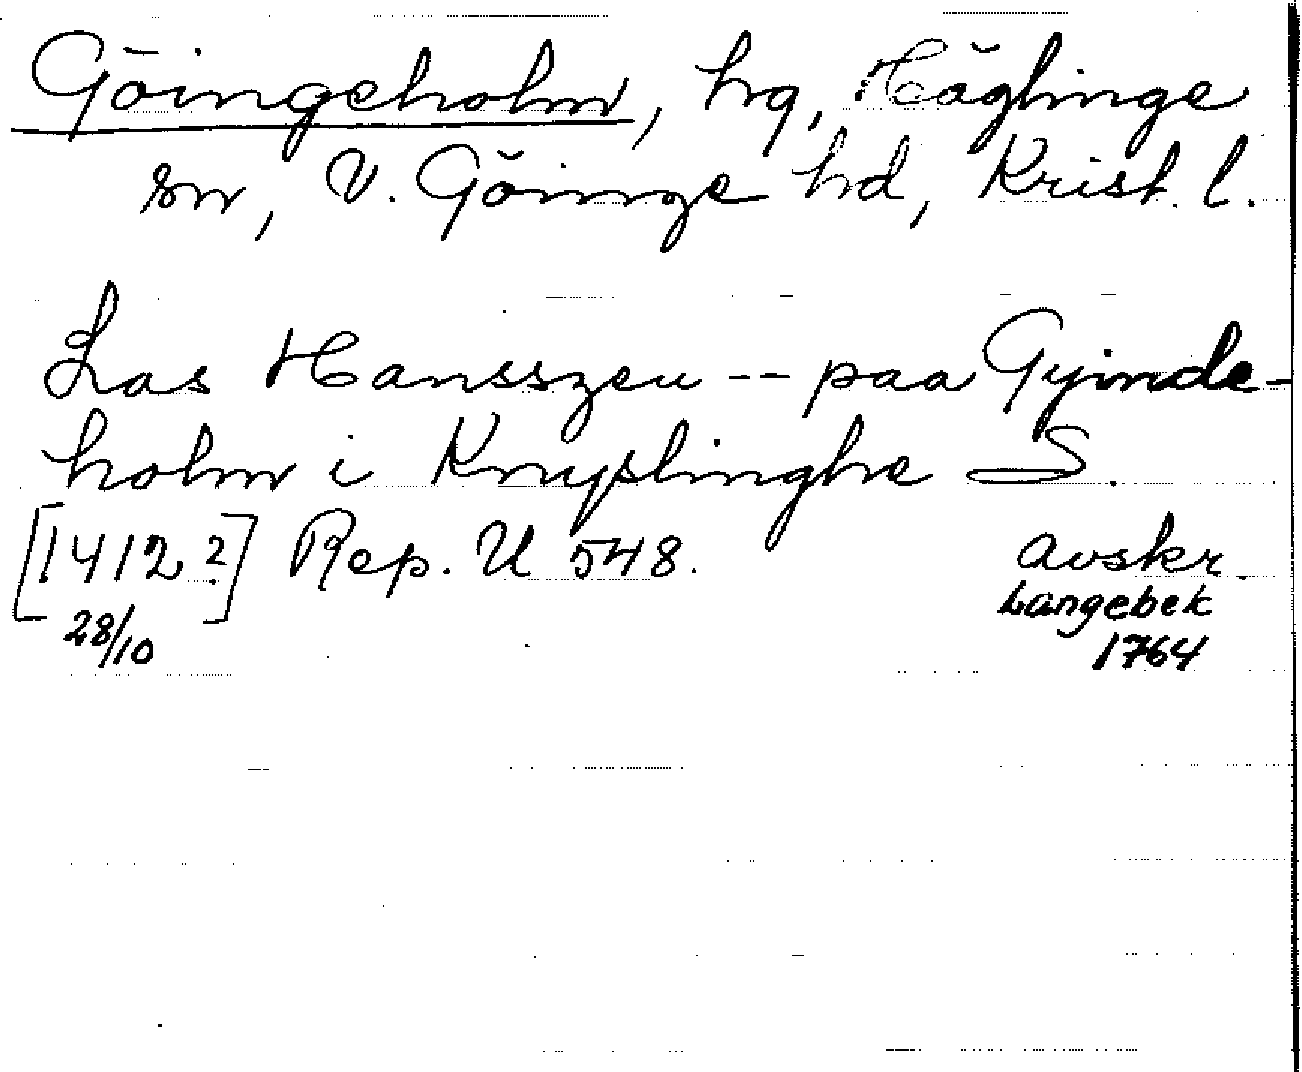 Göingeholm, hg, Häglinge
sn, V. Göinge hd, Krist. l.
Las Hansszen -- paa Gyinde-
holm i Knyslinghe S.
[1412?] Rep. U 548.
28/10
avskr.
Langebek
1764